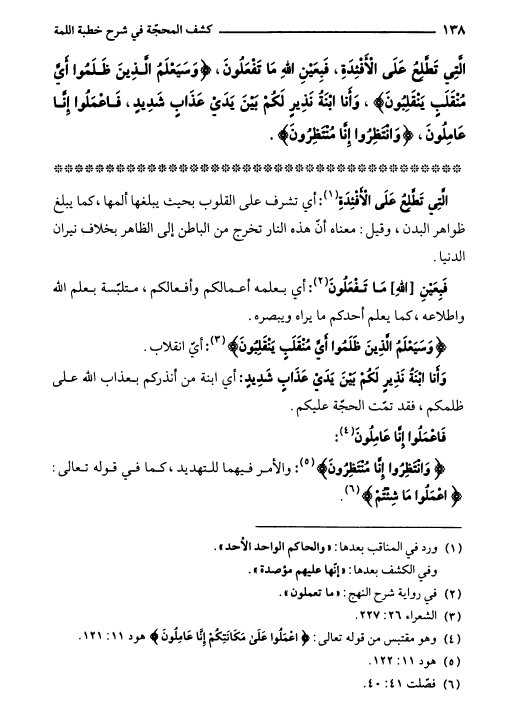 ١٣٨ كشف المحجّة في شرح خطبة اللمة
الَّتِي تَطَّلِعُ عَلَى الْأَفْئِدَةِ، فَبِعَيْنِ اللهِ مَا تَفْعَلُونَ، ﴿وَسَيَعْلَمُ الَّذِينَ ظَلَمُوا أَيَّ
مُنْقَلَبٍ يَنْقَلِبُونَ﴾، وَأَنا ابْنَةُ نَذِيرٍ لَكُمْ بَيْنَ يَدَيْ عَذَابٍ شَدِيدٍ، فَاعْمَلُوا إِنَّا
عَامِلُونَ، ﴿وَانْتَظِرُوا إِنَّا مُنْتَظِرُونَ﴾.
الَّتِي تَطَّلِعُ عَلَى الْأَفْئِدَةِ(١): أي تشرف على القلوب بحيث يبلغها ألمها، كما يبلغ
ظواهر البدن، وقيل: معناه أنّ هذه النار تخرج من الباطن إلى الظاهر بخلاف نيران
الدنيا.
فَبِعَيْنِ [اللهِ] مَا تَفْعَلُونَ(٢): أي بعلمه أعمالكم وأفعالكم، متلبّسة بعلم الله
واطلاعه، كما يعلم أحدكم ما يراه ويبصره.
﴿وَسَيَعْلَمُ الَّذِينَ ظَلَمُوا أَيَّ مُنْقَلَبٍ يَنْقَلِبُونَ﴾(٣): أيّ انقلاب.
وَأَنا ابْنَةُ نَذِيرٍ لَكُمْ بَيْنَ يَدَيْ عَذَابٍ شَدِيدٍ: أي ابنة من أنذركم بعذاب الله على
ظلمكم، فقد تمّت الحجّة عليكم.
فَاعْمَلُوا إِنَّا عَامِلُونَ(٤):
﴿وَانْتَظِرُوا إِنَّا مُنْتَظِرُونَ﴾(٥): والأمر فيهما للتهديد، كما في قوله تعالى:
﴿اعْمَلُوا مَا شِئْتُمْ﴾(٦).
(١) ورد في المناقب بعدها: «والحاكم الواحد الأحد».
وفي الكشف بعدها: «إنّها عليهم مؤصدة».
(٢) في رواية شرح النهج: «ما تعملون».
(٣) الشعراء ٢٦: ٢٢٧.
(٤) وهو مقتبس من قوله تعالى: ﴿اعْمَلُوا عَلَىٰ مَكَانَتِكُمْ إِنَّا عَامِلُونَ﴾ هود ١١: ١٢١.
(٥) هود ١١: ١٢٢.
(٦) فصّلت ٤١: ٤٠.